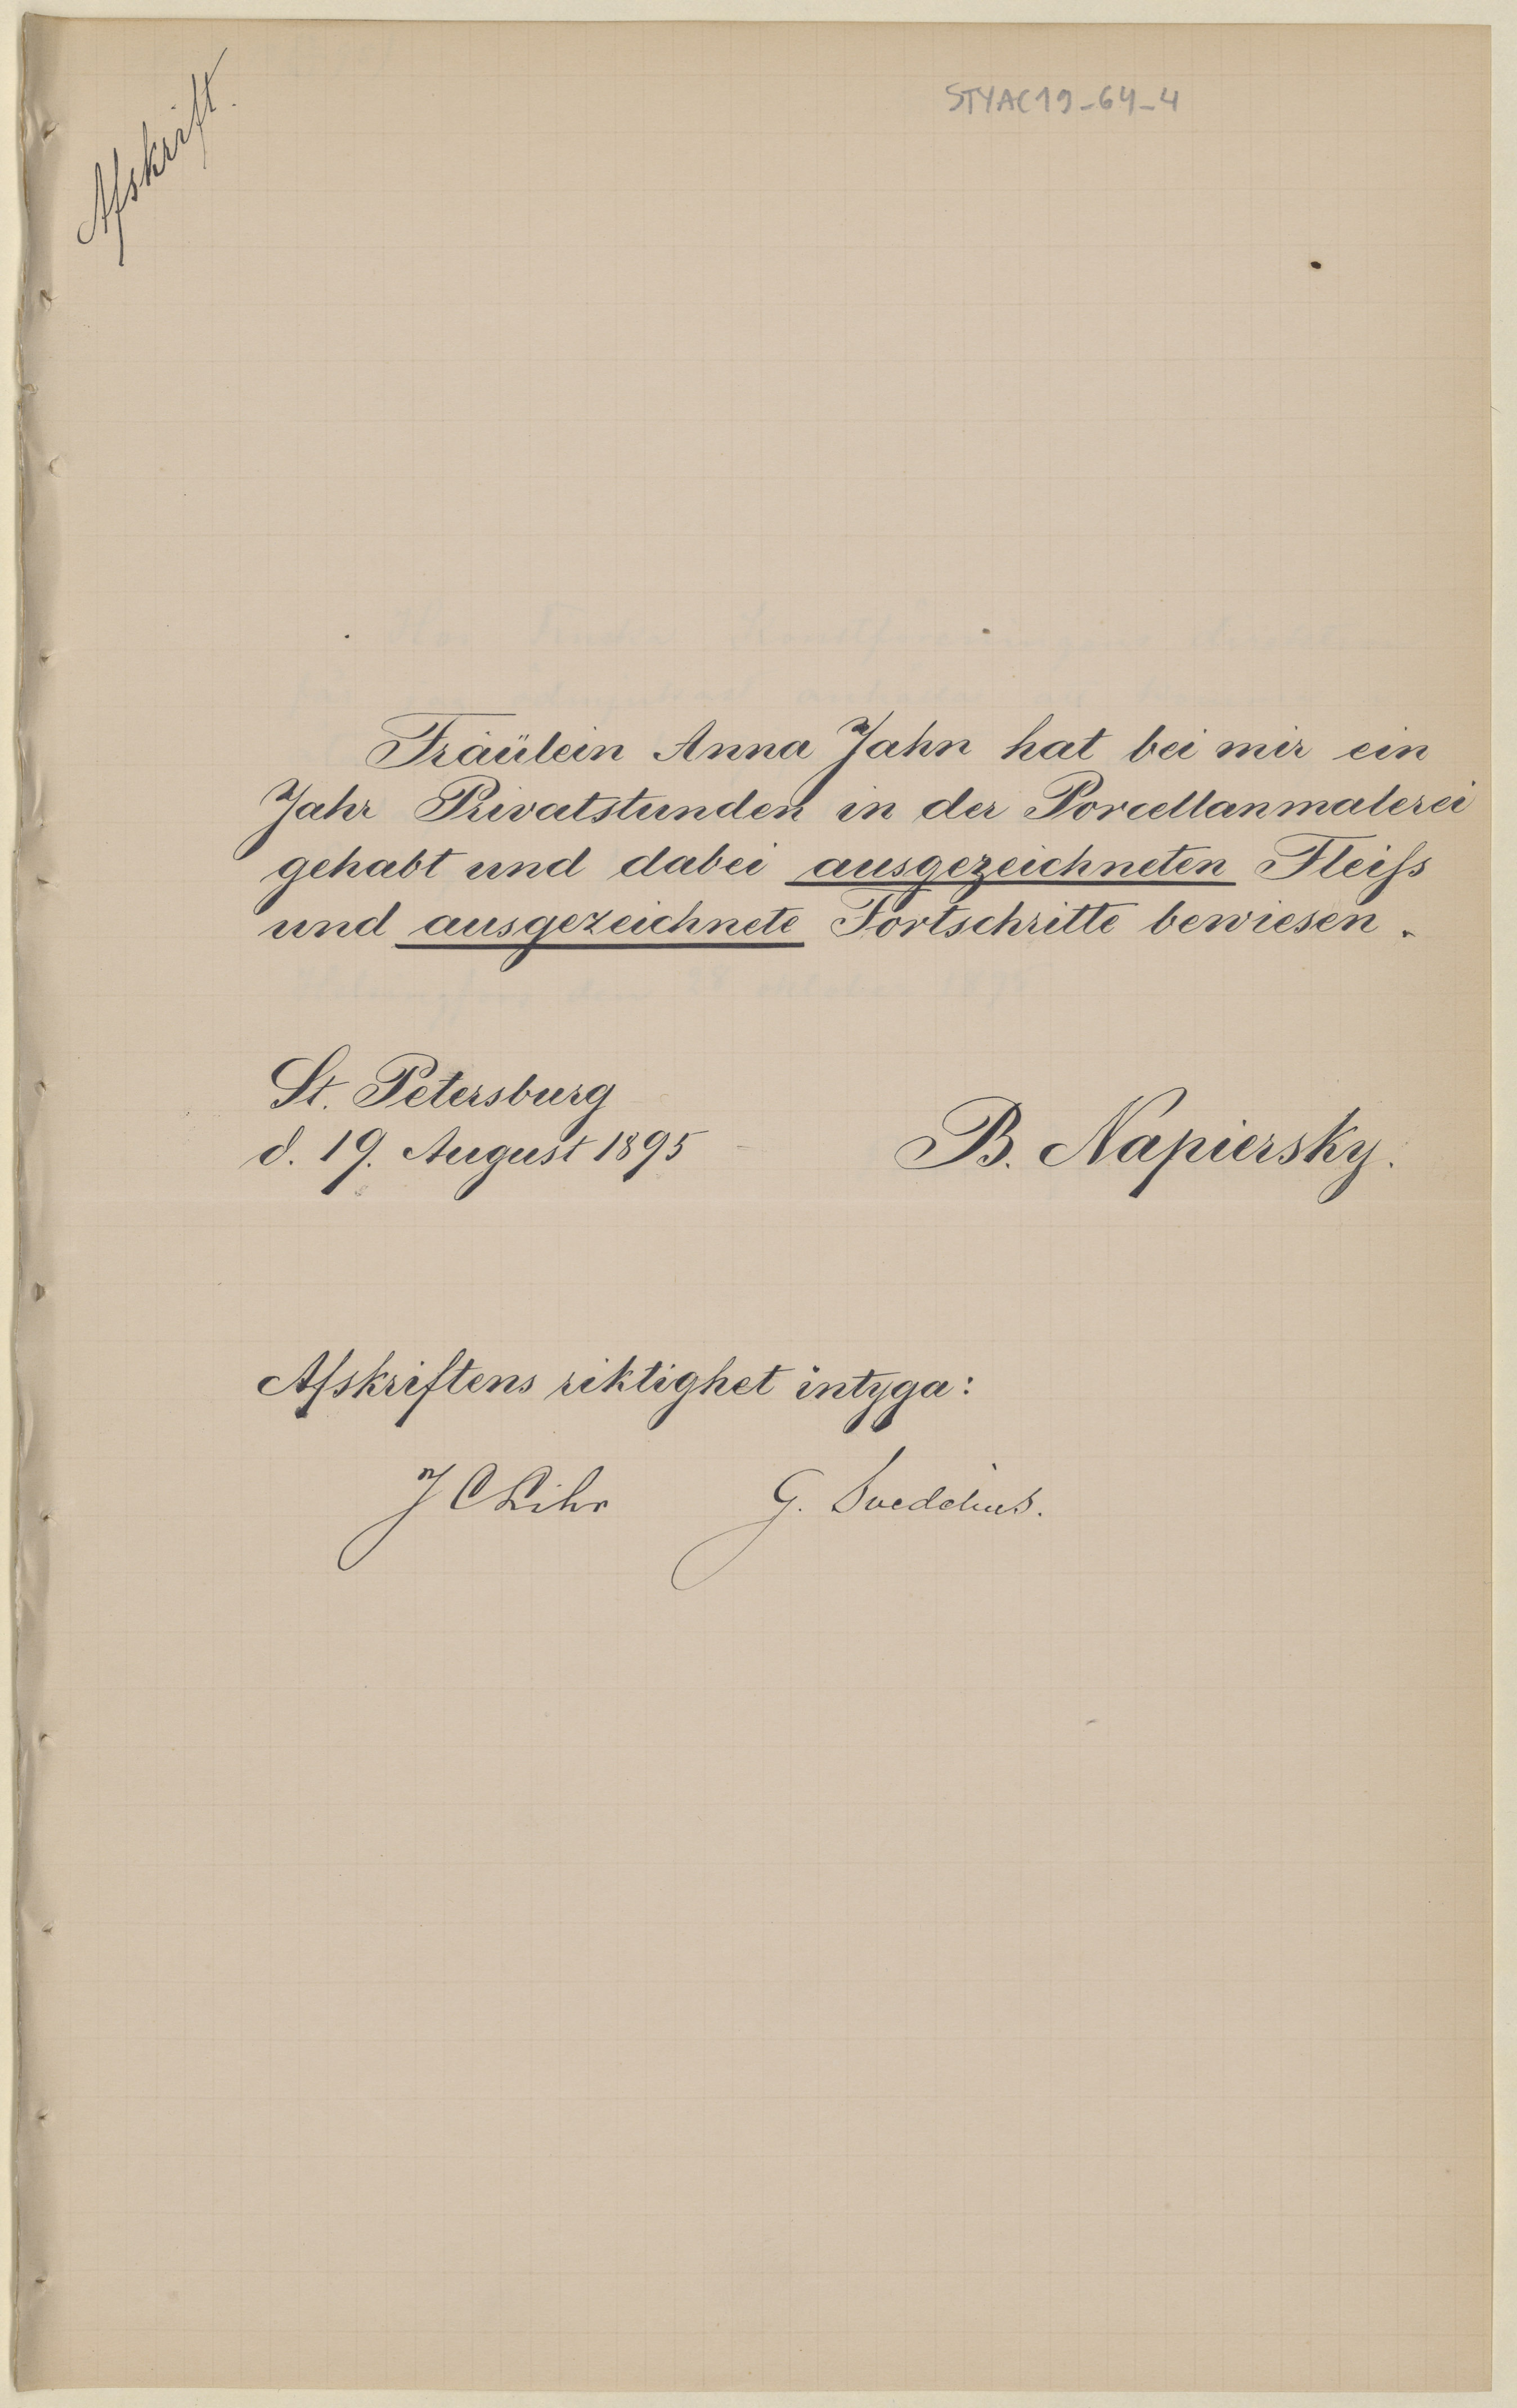 STYAC19_64_4
Afskrift.
Fräülein Anna Jahn hat bei mir ein
Jahr Privatstunden in der Porcellanmalerei
gehabt und dabei ausgezeichneten Fleiſs
und ausgezeichnete Fortschritte bewiesen.
St. Petersburg
d. 19. August 1895
B. Napiersky.
Afskriftens riktighet intyga:
J C
G. Svedelius.